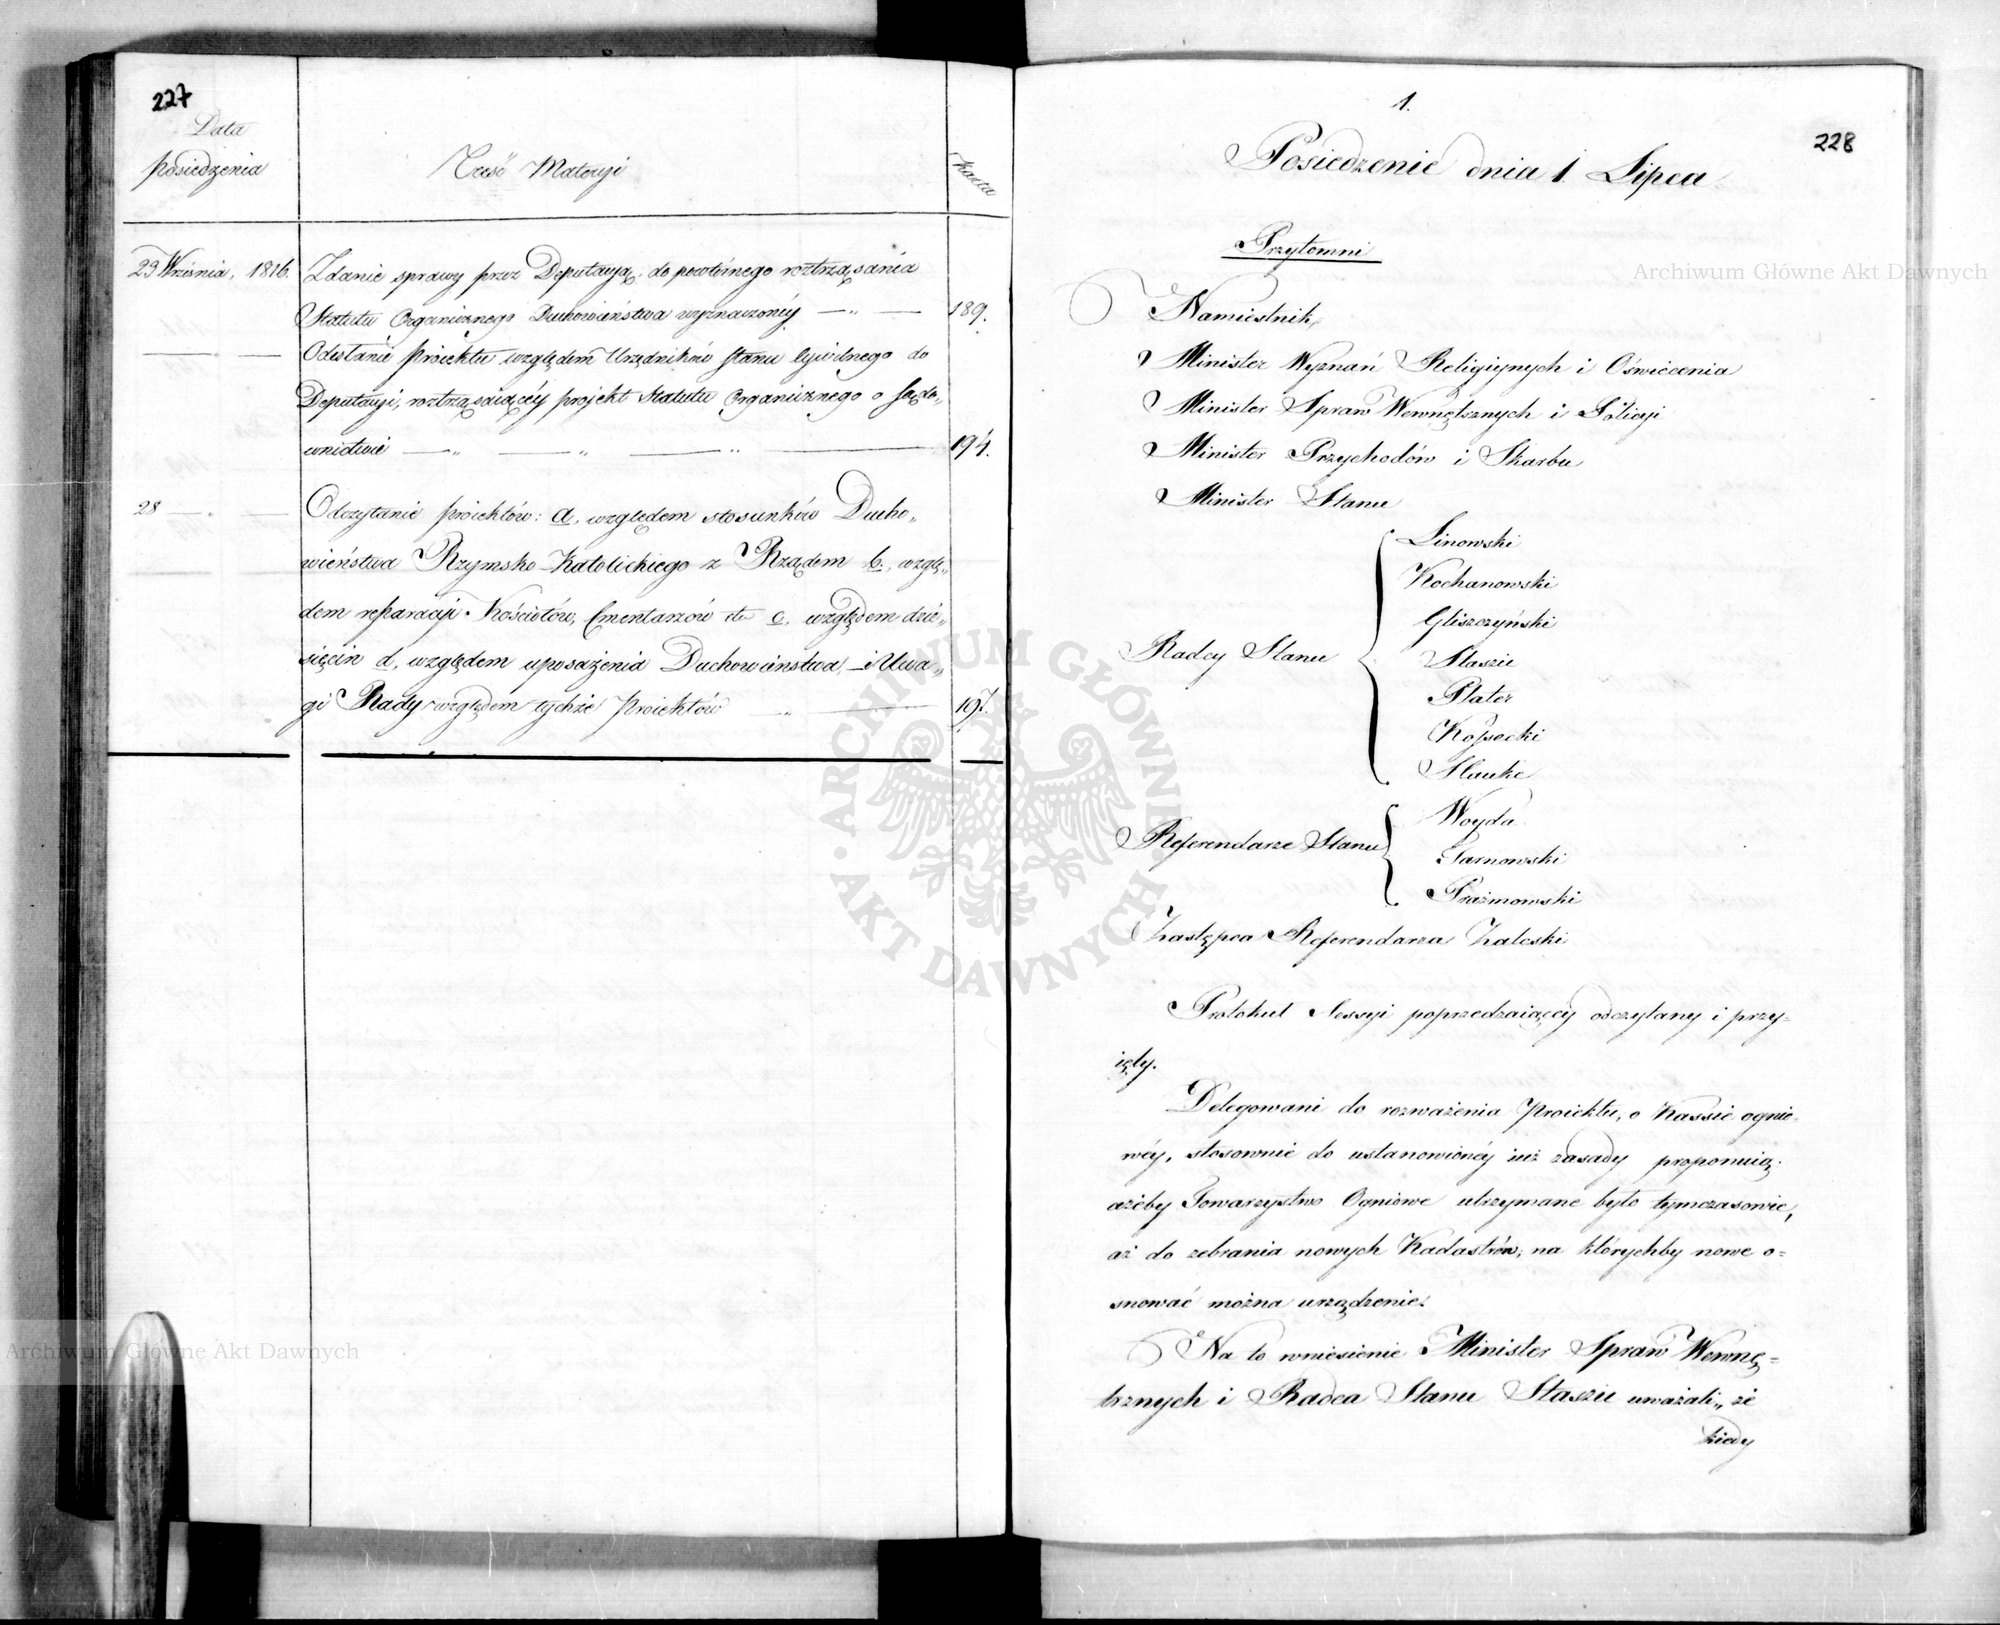 227
Data
posiedzenia
Treść Materyi
Karta
23 Września, 1816.
Zdanie sprawy przez Deputacyą, do powtórnego roztrząsania
Statutu Organicznego Duchowieństwa wyznaczonéy — „ — 189.
— „ — Odesłanie Proiektu względem Urzędników stanu Cywilnego do
Deputacyi, roztrząsaiącéy projekt Statutu Organicznego o sądo„
wnictwie — „ — „ — „ — 194.
28 — „ — Odczytanie proiektów: a, względem stosunków Ducho„
wieństwa Rzymsko-Katolickiego z Rządem b., wzglę„
dem reparacyi Kościołów, Cmentarzów etc c, względem dzie„
sięcin d, względem uposażenia Duchowieństwa, — i Uwa„
gi Rady względem tychże Proiektów — „ — 197.
1.
228
Posiedzenie dnia 1. Lipca
Przytomni
Namiestnik,
Minister Wyznań Religiynych i Oświecenia
Minister Spraw Wewnętrznych i Policyi
Minister Przychodów i Skarbu
Minister Stanu
Radcy Stanu
Linowski
Kochanowski
Gliszczyński
Staszic
Plater
Kossecki
Hauke
Referendarze Stanu
Woyda
Tarnowski
Prażmowski
Zastępca Referendarza Zaleski
Protokuł Sessyi poprzedzaiącéy odczytany i przy=
ięty.
Delegowani do rozważenia Proiektu, o Kassie ognio=
wéy, stosownie do ustanowionéy iuż zasady proponuią,
ażeby Towarzystwo Ogniowe utrzymane było tymczasowie,
aż do zebrania nowych Kadastrów, na którychby nowe o=
snować można urządzenie.
Na to wniesienie Minister Spraw Wewnę=
trznych i Radca Stanu Staszic uważali, że
kiedy
Archiwum Główne Akt Dawnych
Archiwum Główne Akt Dawnych
ARCHIWUM GŁÓWNE
· AKT DAWNYCH ·